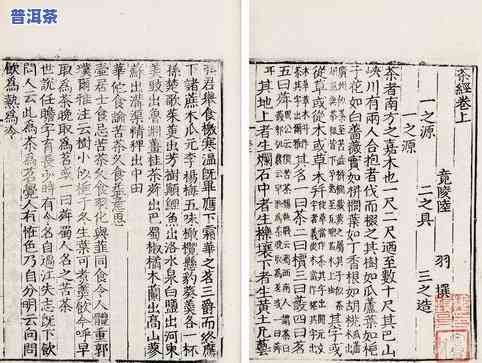 普洱茶
茶經卷上
竟陵陸 羽 撰
一之源 二之具 三之造
一之源
茶者南方之嘉木也一尺二尺迺至數十尺其巴山
峽川有兩人合抱者伐而掇之其樹如瓜蘆葉如梔
子花如白薔薇實如栟櫚葉如丁香根如胡桃
其字或
從草或從木或草木并
其名一曰茶二曰檟三曰蔎四曰茗
五曰荈
其地上者生爛石中者生櫟壤下者生黃土凡藝
弘君舉食檄寒溫既畢應下霜華之茗三爵而終應
下諸蔗木瓜元李楊梅五味橄欖懸豹葵羹各一杯
孫楚歌茱萸出芳樹顛鯉魚出洛水泉白鹽出河東
美豉出魯淵薑桂茶荈出巴蜀椒橘木蘭出高山蓼
蘇出溝渠精稗出中田
華佗食論苦茶久食益意思
壺居士食忌苦茶久食羽化與韮同食令人體重郭
璞爾雅注云樹小似梔子冬生葉可煮羹飲今呼早
取為茶晚取為茗或一曰荈蜀人名之苦茶
世說任瞻字育長少時有令名自過江失志既下飲
問人云此為茶為茗覺人有怪色乃自分明云向問
飲為熱為冷